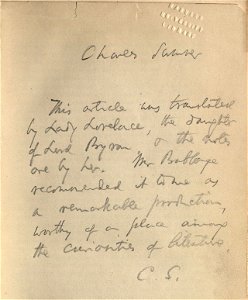 Charles Sumner
This article was translated
by Lady Lovelace, the daughter
of Lord Byron & the notes
are by her. Mr Babbage
recommended it to me as
a remarkable production,
worthy of a place among
the curiosities of literature.
C. S.